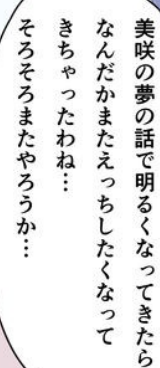 美咲の夢の話で明るくなってきたら
なんだかまたえっちしたくなって
きちゃったわね…
そろそろまたやろうか…